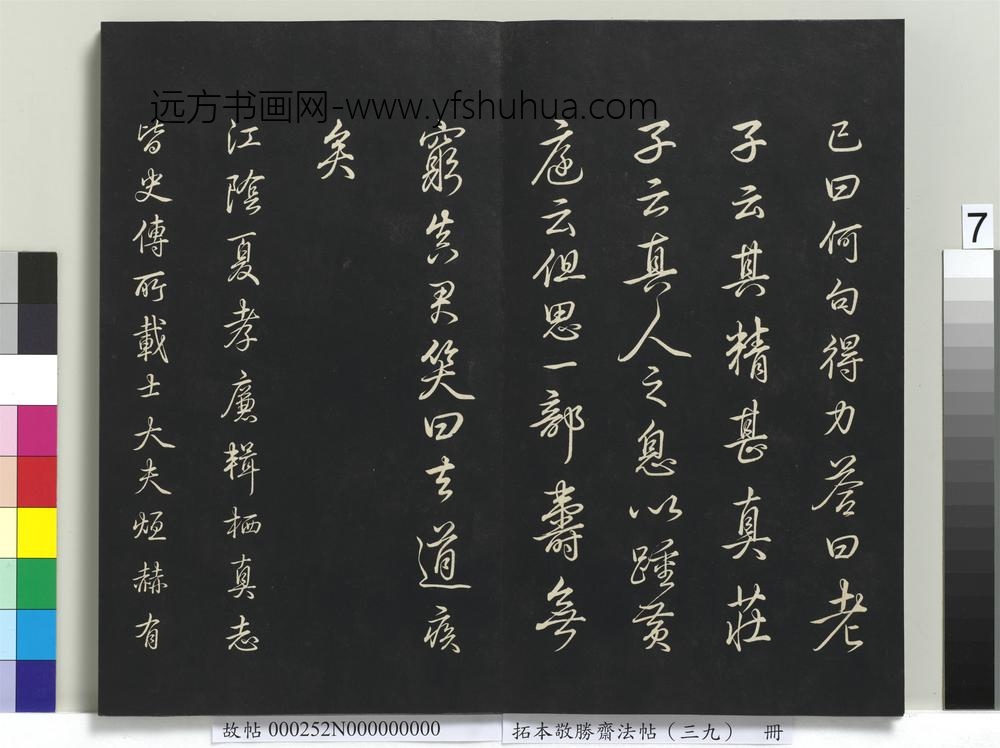 远方书画网-www.yfshuhua.com
已曰何句得力答曰老
子云其精甚真莊
子云真人之息以踵黄
庭云但思一部壽無
窮真君笑曰去道
矣
江陰夏孝廉輯栖真志
皆史傳所載士大夫烜赫有
7
故帖 000252N000000000
拓本敬勝齋法帖（三九） 冊